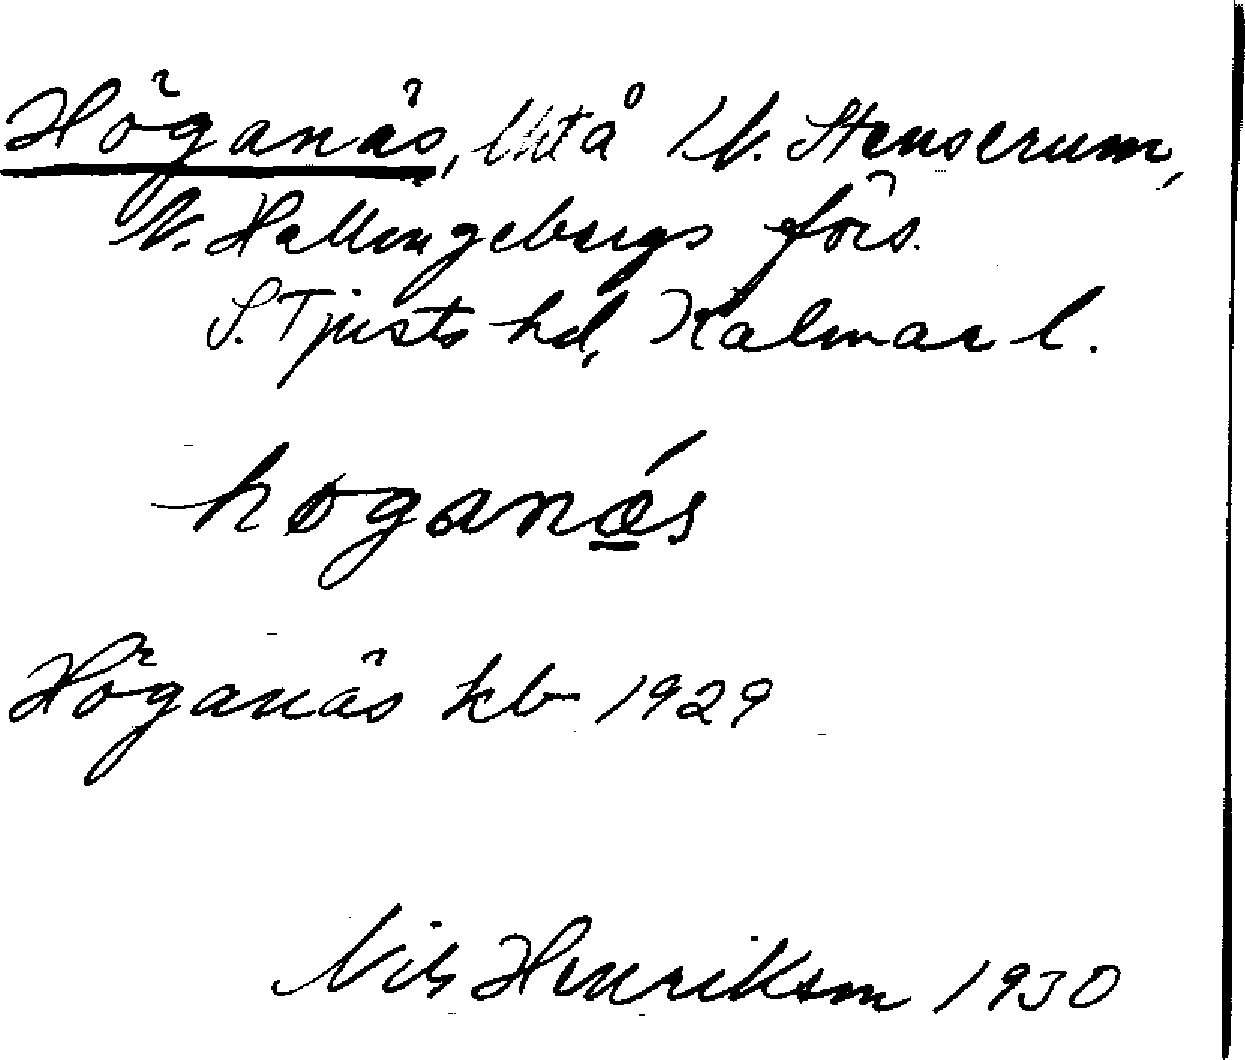 Höganäs, lht å V. Stenserum,
V. Hallingebergs förs.
S. Tjusts hd, Kalmar l.
høganǽs
Höganäs kb 1929
Nils Henrikson 1930